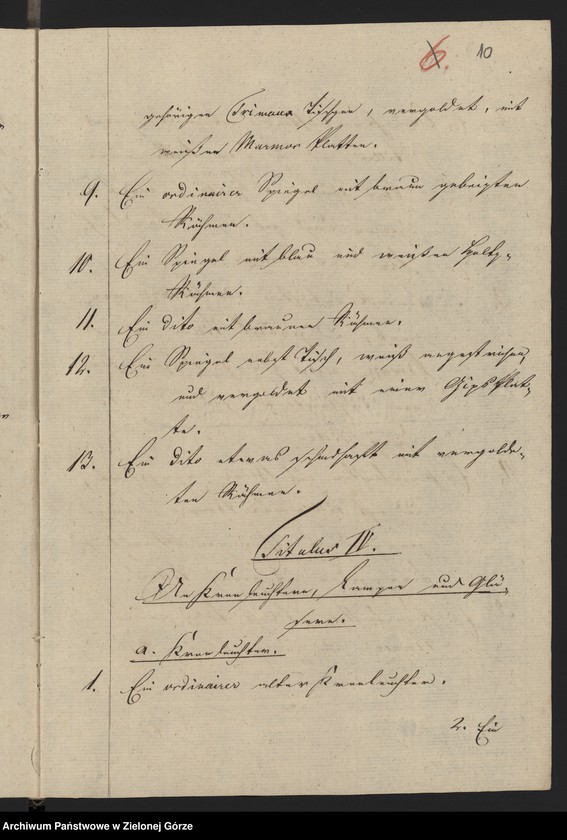 6. 10
gehörigen Trimaux Tischgen, vergoldet, mit
weißen Marmor Platten.
9. Ein ordinairer Spiegel mit braun gebeizten
Rähmen.
10. Ein Spiegel mit blau und weißen Holtz-
Rähmen.
11. Ein dito mit braunen Rähmen.
12. Ein Spiegel nebst Tisch, weiß angestrichen
und vergoldet mit einer Gips Plat-
te.
13. Ein dito etwas schadhaft mit vergolde-
ten Rähmen.
Titulus IV.
An Kronleuchtern, Lampen und Glä-
sern.
a. Kronleuchter.
1. Ein ordinairer alter Kronleuchter.
2. Ein
Archiwum Państwowe w Zielonej Górze